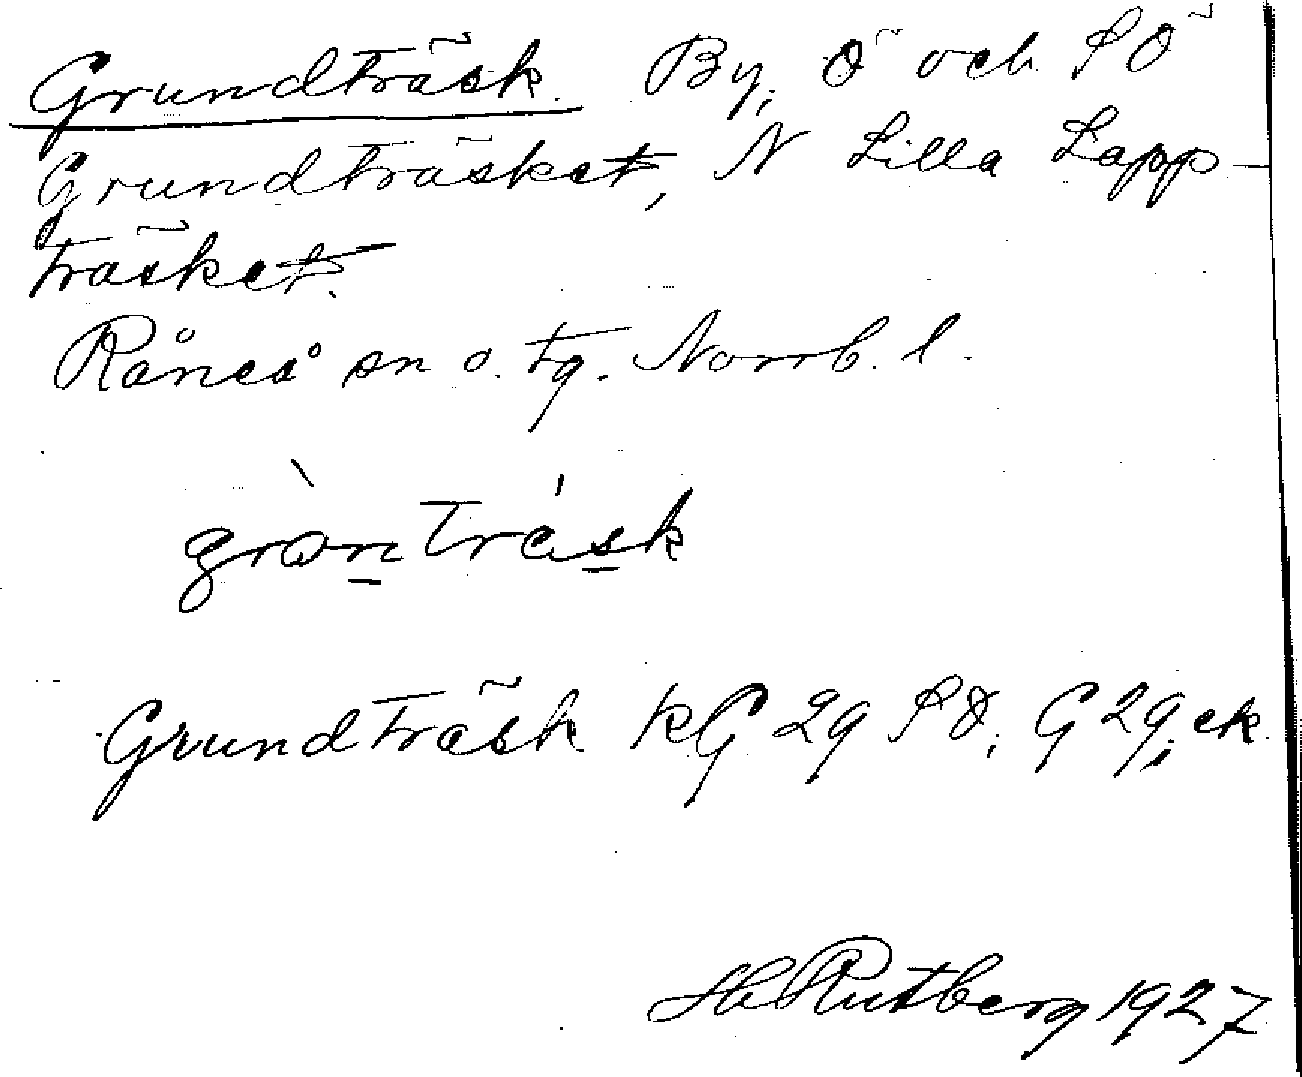 Grundträsk. By, Ö och SÖ
Grundträsket, N Lilla Lapp-
träsket.
Råneå sn o. tg. Norrb. l.
gròn tràsk
Grundträsk kG 29 SO; G 29; ek.
H Rutberg 1927